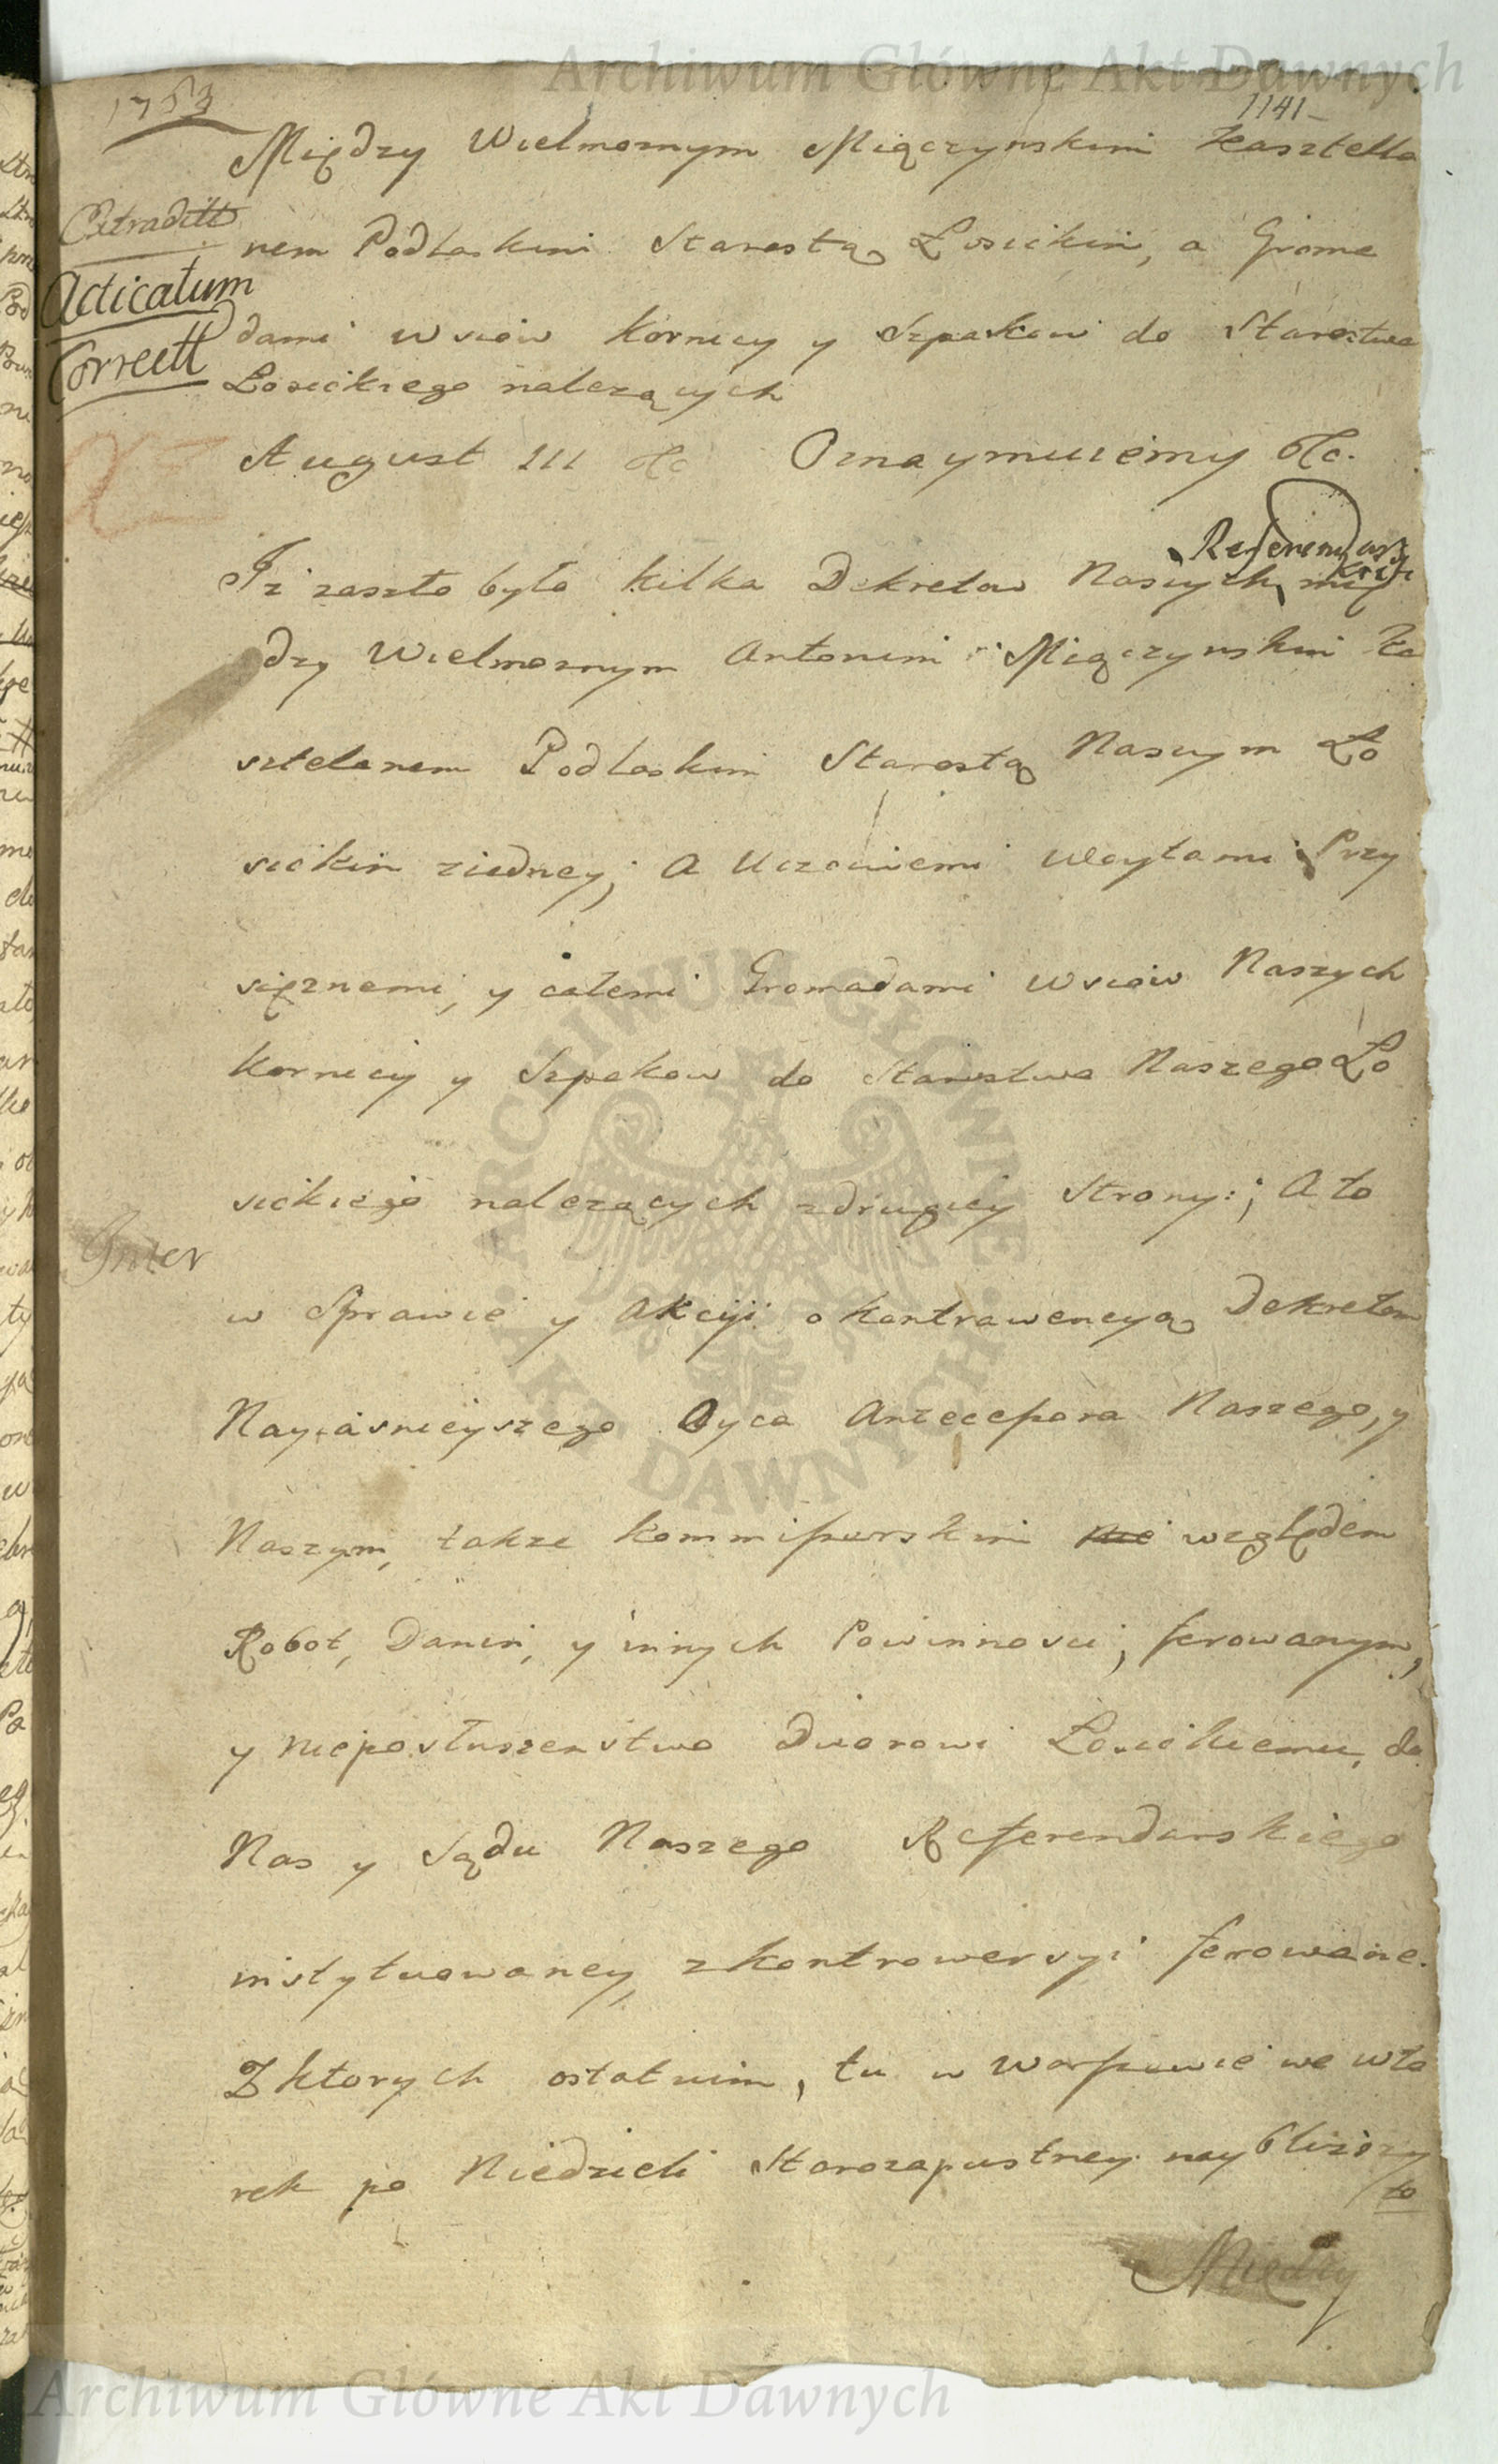 Archiwum Główne Akt Dawnych
1753
1141
Między Wielmoznym Miączynskim Kasztella
Extraditt
nem Podlaskim Starostą Łosickim, a Groma
Acticatum
dami wsiow Kornicy y Szpakow do Starostwa
Correctt
Łosickiego nalezących
August III &c Oznaymuiemy &c.
Referendarskich
Iz zaszło było kilka Dekretow Naszych mię
dzy Wielmoznym Antonim Miączynskim Ka
sztelanem Podlaskim Starostą Naszym Ło
sickim ziedney; A Uczciwemi Woytami Przy
siężnemi, y całemi Gromadami wsiow Naszych
Kornicy y Szpakow do Starostwa Naszego Ło
sickiego nalezących zdrugiey Strony; A to
Inter
w Sprawie y Akcyi o Kontrawencyą Dekretom
Nayiasnieyszego Oyca Antecessora Naszego, y
Naszym, takze Kommissarskim nie względem
Robot, Danin, y innych Powinnosci, ferowanym,
y nieposłuszenstwo Dworowi Łosickiemu, do
Nas y Sądu Naszego Referendarskiego
instytuowaney, z kontrowersyi ferowane.
Z ktorych ostatnim, tu w Warszawie we wto
rek po Niedzieli Starozapustney naybliższy
to
Miedzy
ARCHIWUM GŁÓWNE AKT DAWNYCH
Archiwum Główne Akt Dawnych